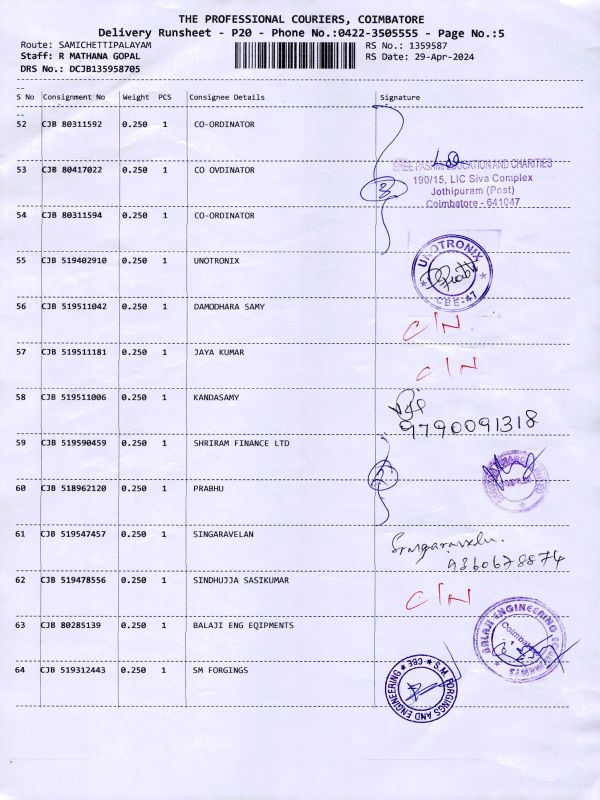 THE PROFESSIONAL COURIERS, COIMBATORE
Delivery Runsheet - P20 - Phone No.:0422-3505555 - Page No.:5
Route: SAMICHETTIPALAYAM RS No.: 1359587
Staff: R MATHANA GOPAL RS Date: 29-Apr-2024
DRS No.: DCJB135958705
S No Consignment No Weight PCS Consignee Details Signature
52 CJB 80311592 0.250 1 CO-ORDINATOR
53 CJB 80417022 0.250 1 CO OVDINATOR
SREE PASAMI EDUCATION AND CHARITIES
190/15, LIC Siva Complex
Jothipuram (Post)
Coimbatore - 641047
54 CJB 80311594 0.250 1 CO-ORDINATOR
55 CJB 519402910 0.250 1 UNOTRONIX
UNOTRONIX
CBE-47
56 CJB 519511042 0.250 1 DAMODHARA SAMY
C/N
57 CJB 519511181 0.250 1 JAYA KUMAR
C/N
58 CJB 519511006 0.250 1 KANDASAMY
9790091318
59 CJB 519590459 0.250 1 SHRIRAM FINANCE LTD
60 CJB 518962120 0.250 1 PRABHU
61 CJB 519547457 0.250 1 SINGARAVELAN
Singaravelu.
9360678874
62 CJB 519478556 0.250 1 SINDHUJJA SASIKUMAR
C/N
63 CJB 80285139 0.250 1 BALAJI ENG EQIPMENTS
BALAJI ENGINEERING
Coimbatore
64 CJB 519312443 0.250 1 SM FORGINGS
S.M. FORGINGS AND ENGINEERING
CBE